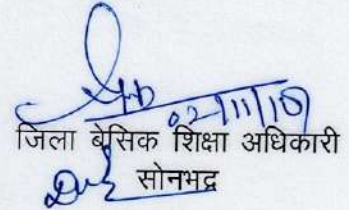 02/11/19
जिला बेसिक शिक्षा अधिकारी
सोनभद्र